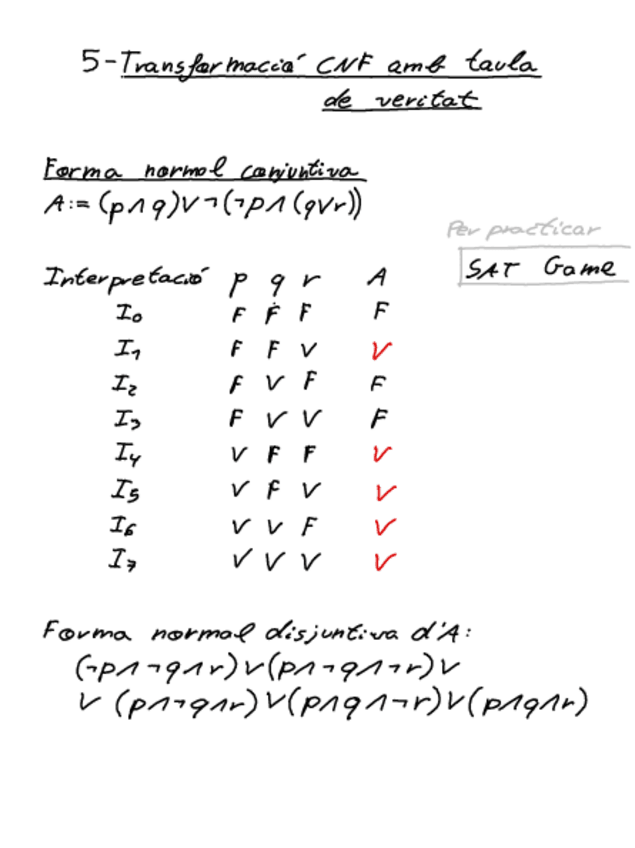 5-Transformació CNF amb taula
de veritat
Forma normal conjuntiva
A:= (p∧q)∨¬(¬p∧(q∨r))
Per practicar
SAT Game
Interpretació p q r A
I₀ F F F F
I₁ F F V V
I₂ F V F F
I₃ F V V F
I₄ V F F V
I₅ V F V V
I₆ V V F V
I₇ V V V V
Forma normal disjuntiva d'A:
(¬p∧¬q∧r)∨(p∧¬q∧¬r)∨
∨ (p∧¬q∧r)∨(p∧q∧¬r)∨(p∧q∧r)